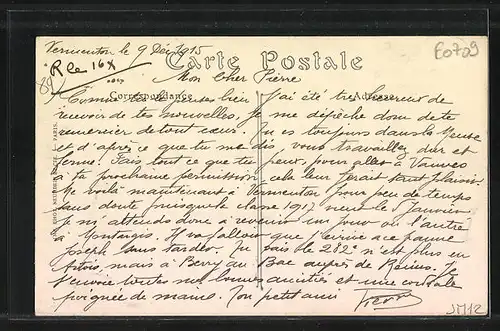 Vermenton le 9 Déc 1915
Carte Postale
E0709
R le 16 X
Mon cher Pierre
Correspondance
Adresse
Comme tu penses bien j'ai été très heureux de
recevoir de tes nouvelles, je me dépêche donc de te
remercier de tout cœur. Tu es toujours dans la Meuse
et d'après ce que tu me dis, vous travaillez dur et
ferme. Fais tout ce que tu peux, pour aller à Vanves
à ta prochaine permission, cela leur ferait tant plaisir.
Me voilà maintenant à Vermenton pour peu de temps
sans doute puisque la classe 1917 vient le 5 Janvier
Je m'attends donc à revenir un jour ou l'autre
à Montargis. Il va falloir que j'écrive à ce pauvre
Joseph sans tarder. Je sais le 282e n'est plus en
Artois, mais à Berry au Bac auprès de Reims. Je
t'envoie toutes mes bonnes amitiés et une cordiale
poignée de mains. Ton petit ami
JM12